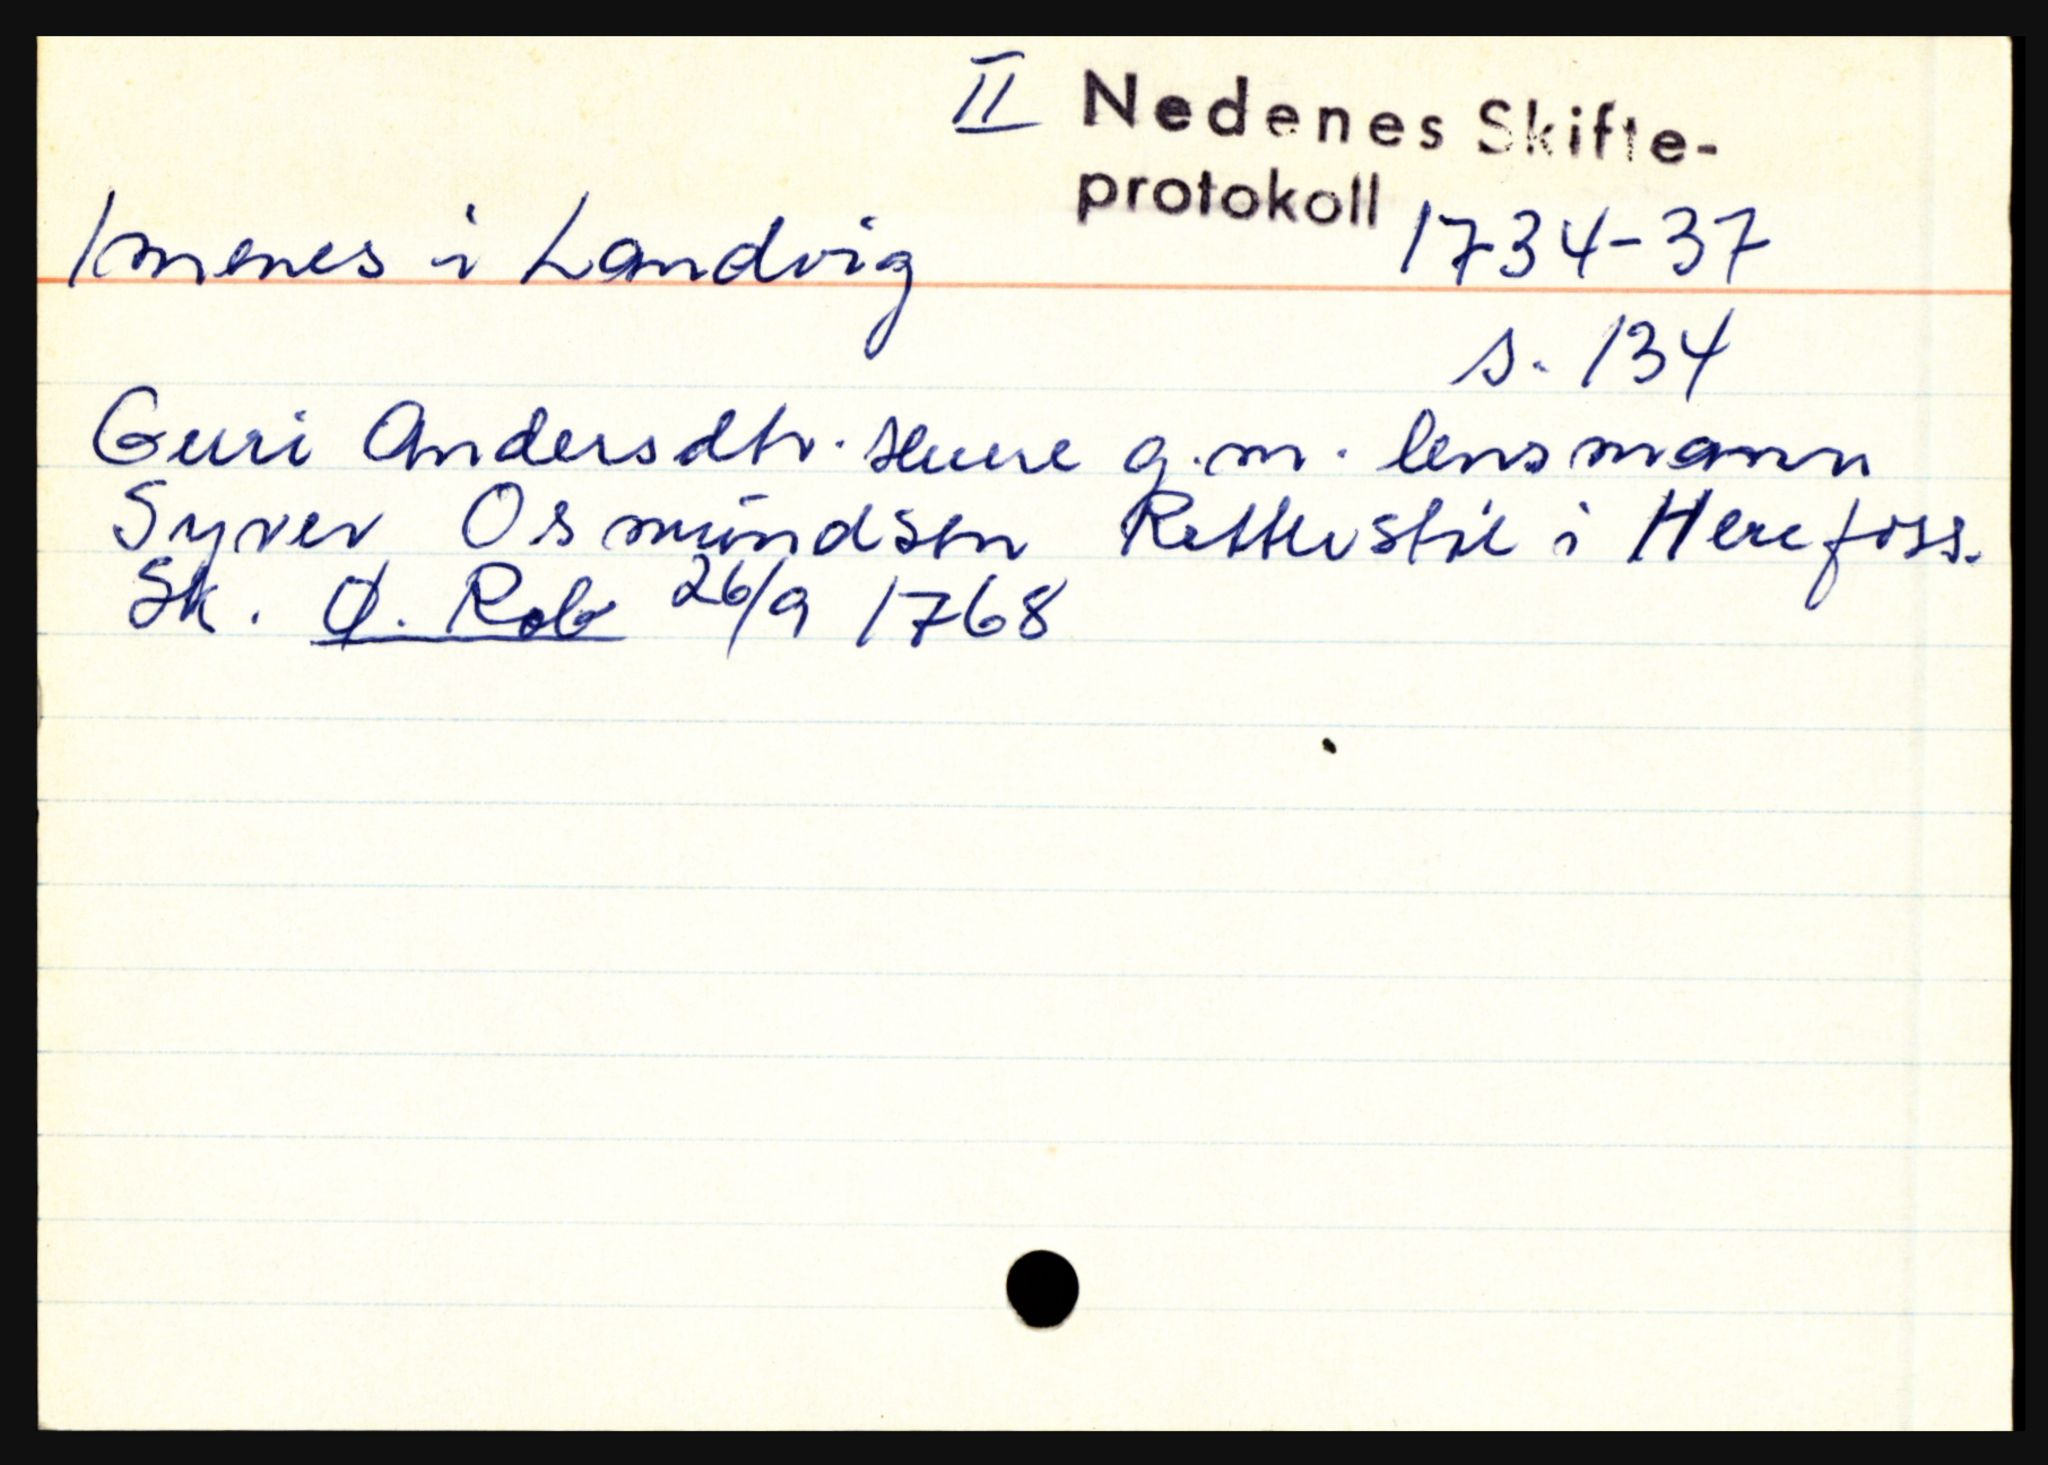 II Nedenes Skifte-
protokoll
Imenes i Landvig 1734-37
s. 134
Guri Andersdtr. Huure g.m. lensmann
Syver Osmundsen Retterstøl i Herefoss.
Sk. Ø. Rob 26/9 1768